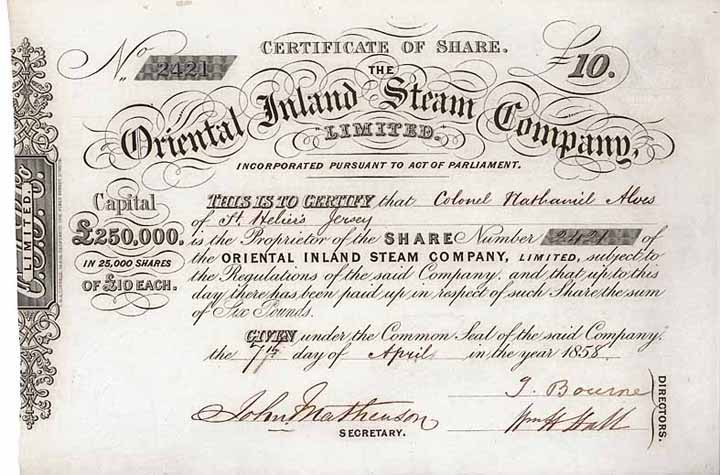 No 2421
CERTIFICATE OF SHARE.
£10.
THE
Oriental Inland Steam Company,
LIMITED.
INCORPORATED PURSUANT TO ACT OF PARLIAMENT.
Capital
£250,000.
IN 25,000 SHARES
OF £10 EACH.
THIS IS TO CERTIFY that Colonel Nathaniel Alves
of St. Helier's Jersey
is the Proprietor of the SHARE Number 2421 of
the ORIENTAL INLAND STEAM COMPANY, LIMITED, subject to
the Regulations of the said Company, and that up to this
day there has been paid up in respect of such Share, the sum
of Six Pounds.
GIVEN under the Common Seal of the said Company,
the 7th day of April in the year 1858.
John Mathewson
SECRETARY.
J. Bourne
Wm H Hall
DIRECTORS.
LIMITED.